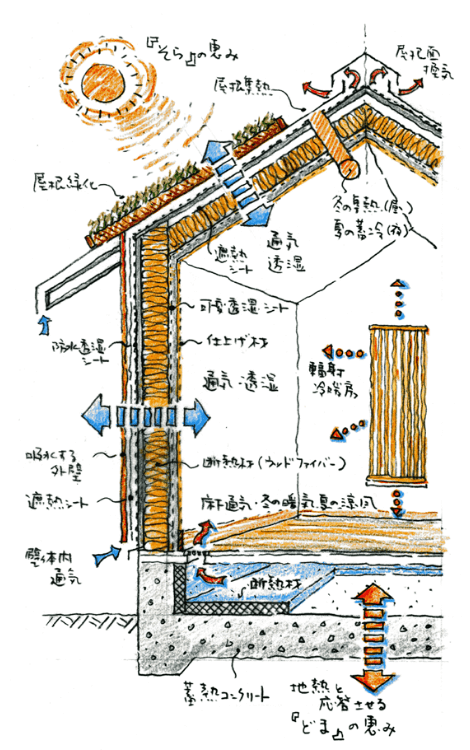 『そら』の恵み
屋根面
換気
屋根集熱
屋根緑化
冬の集熱(昼)
夏の蓄冷(夜)
遮熱
シート
通気
透湿
可変透湿シート
防水透湿
シート
仕上げ材
輻射
冷暖房
通気・透湿
吸水する
外壁
断熱材(ウッドファイバー)
遮熱シート
床下通気・冬の暖気 夏の涼風
壁体内
通気
断熱材
蓄熱コンクリート
地熱と
応答させる
『どま』の恵み